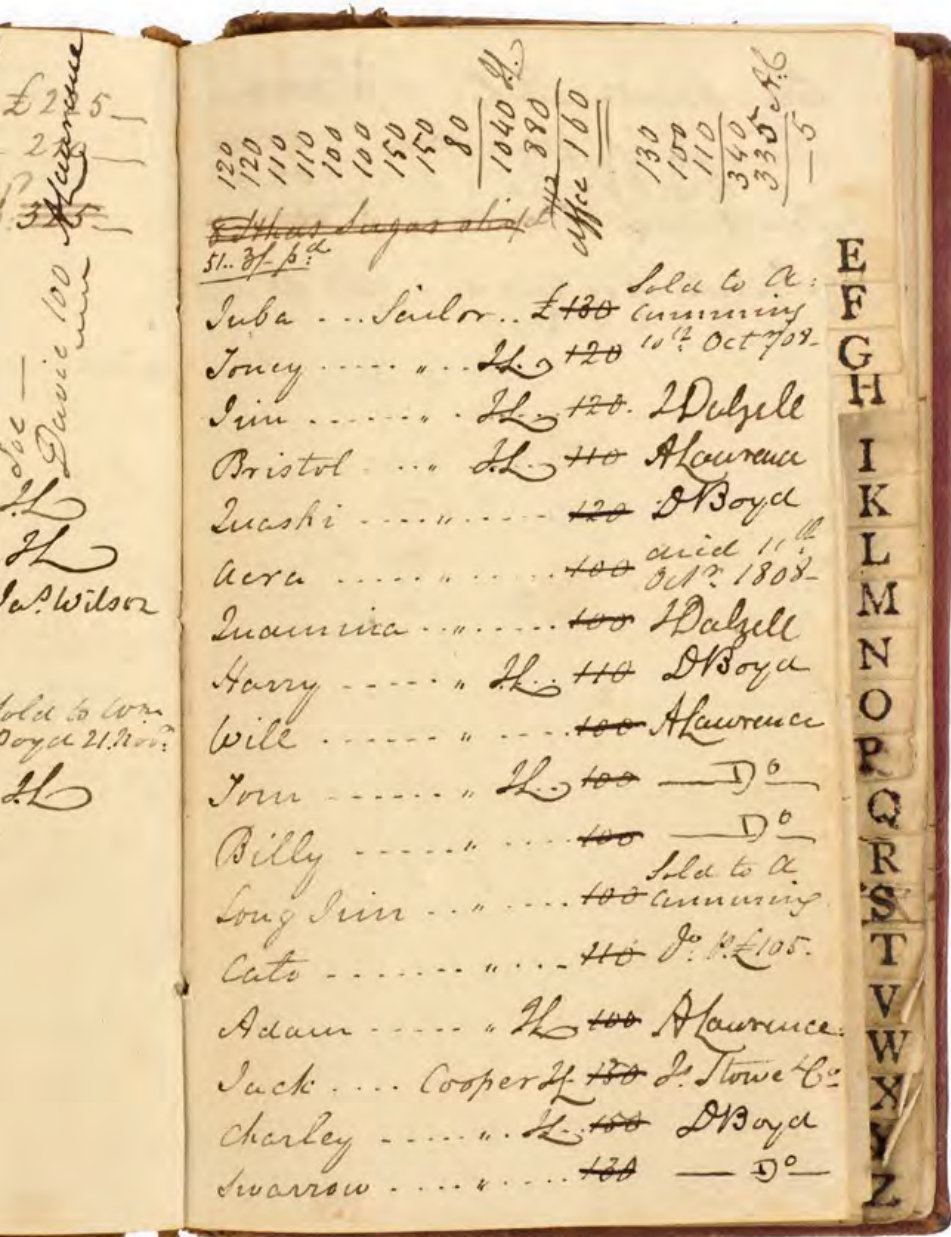 £2 5
2
325
Davie 100 ALawrence
Joe —
JL
JL
Jas. Wilson
Sold to Wm
Boyd 21. Novr.
JL
120
120
110
110
100
100
150
150
80
1040 JL
880
160
130
100
110
340
335 AC
5
8 Sugar
51.. 3/- pd
Juba ... Sailor .. £130 Sold to A:
Cumming
Toney ..... " .. JL. 120 10th. Oct 708-
Jim ...... " JL.. 120. JDalzell
Bristol ... " JL. 110 ALawrence
Quashi ..... " ..... 120 DBoyd
Acra ...... " ..... 100 died 11th
Octr. 1808-
Quamina .. " ..... 100 JDalzell
Harry ..... " JL.. 110 DBoyd
Will ...... " ..... 100 ALawrence
Tom ...... " JL.. 100 — Do —
Billy ...... " ..... 100 — Do —
Long Jim .. " .... 100 Sold to A
Cumming
Cato ....... " ... 110 Do. £105.
Adam ..... " JL 100 ALawrence.
Jack .... Cooper JL 130 Js. Stowe & Co
Charley ..... " . JL.. 150 DBoyd
Swarrow .... " .... 130 — Do —
E
F
G
H
I
K
L
M
N
O
P
Q
R
S
T
V
W
X
Y
Z